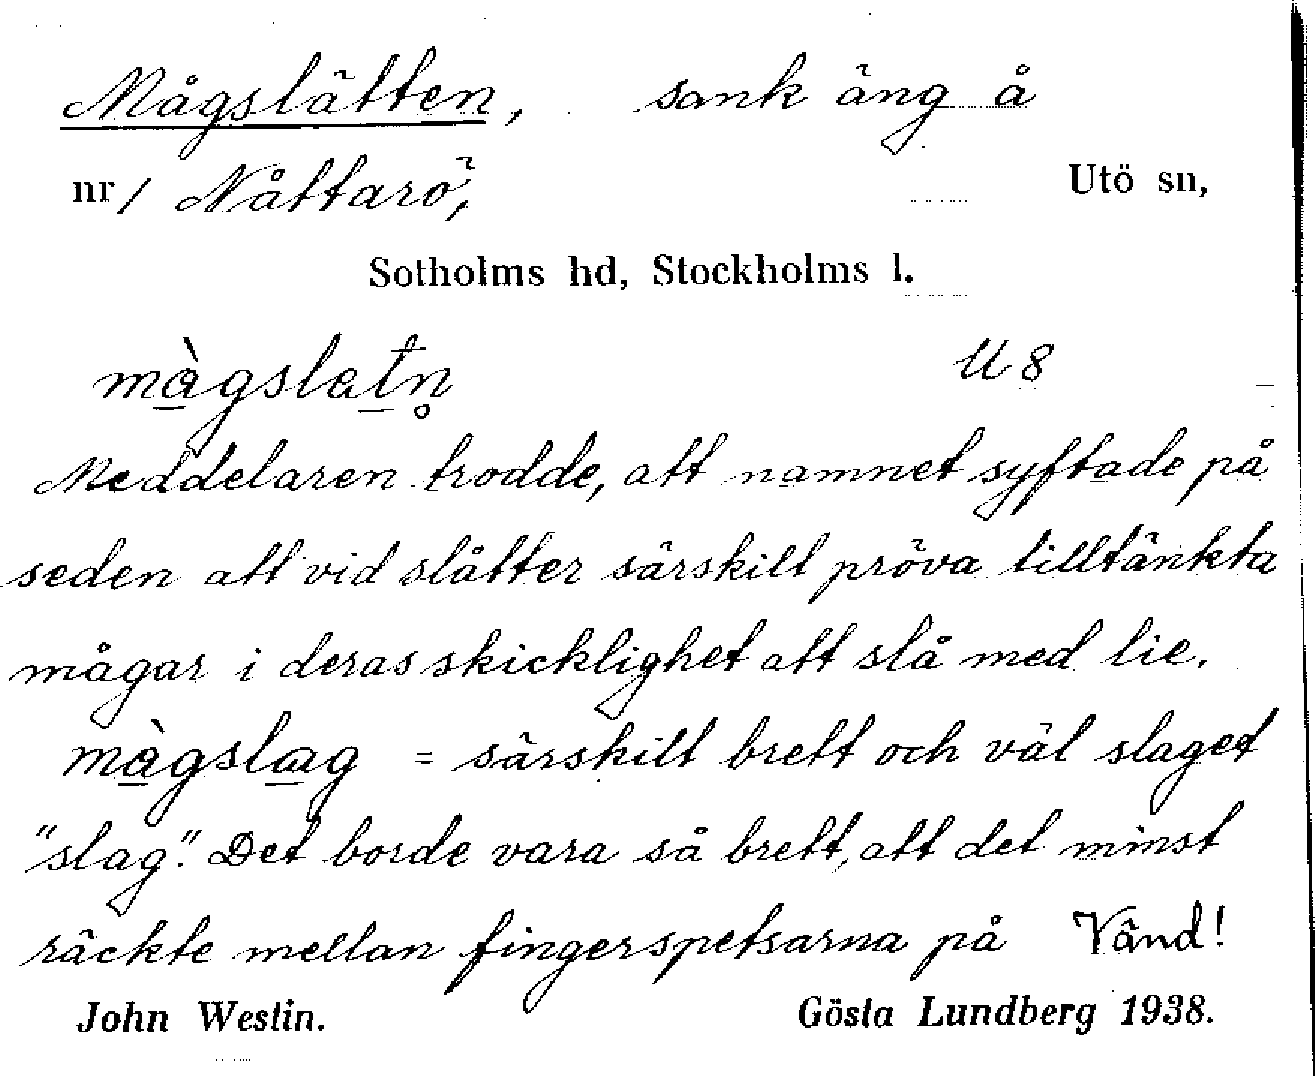 Mågslätten, sank äng å
nr 1 Nåttarö, Utö sn,
Sotholms hd, Stockholms l.
màgslatn̥ U 8
Meddelaren trodde, att namnet syftade på
seden att vid slåtter särskilt pröva tilltänkta
mågar i deras skicklighet att slå med lie.
màgslag = särskilt brett och väl slaget
"slag". Det borde vara så brett, att det minst
räckte mellan fingerspetsarna på Vänd!
John Westin. Gösta Lundberg 1938.